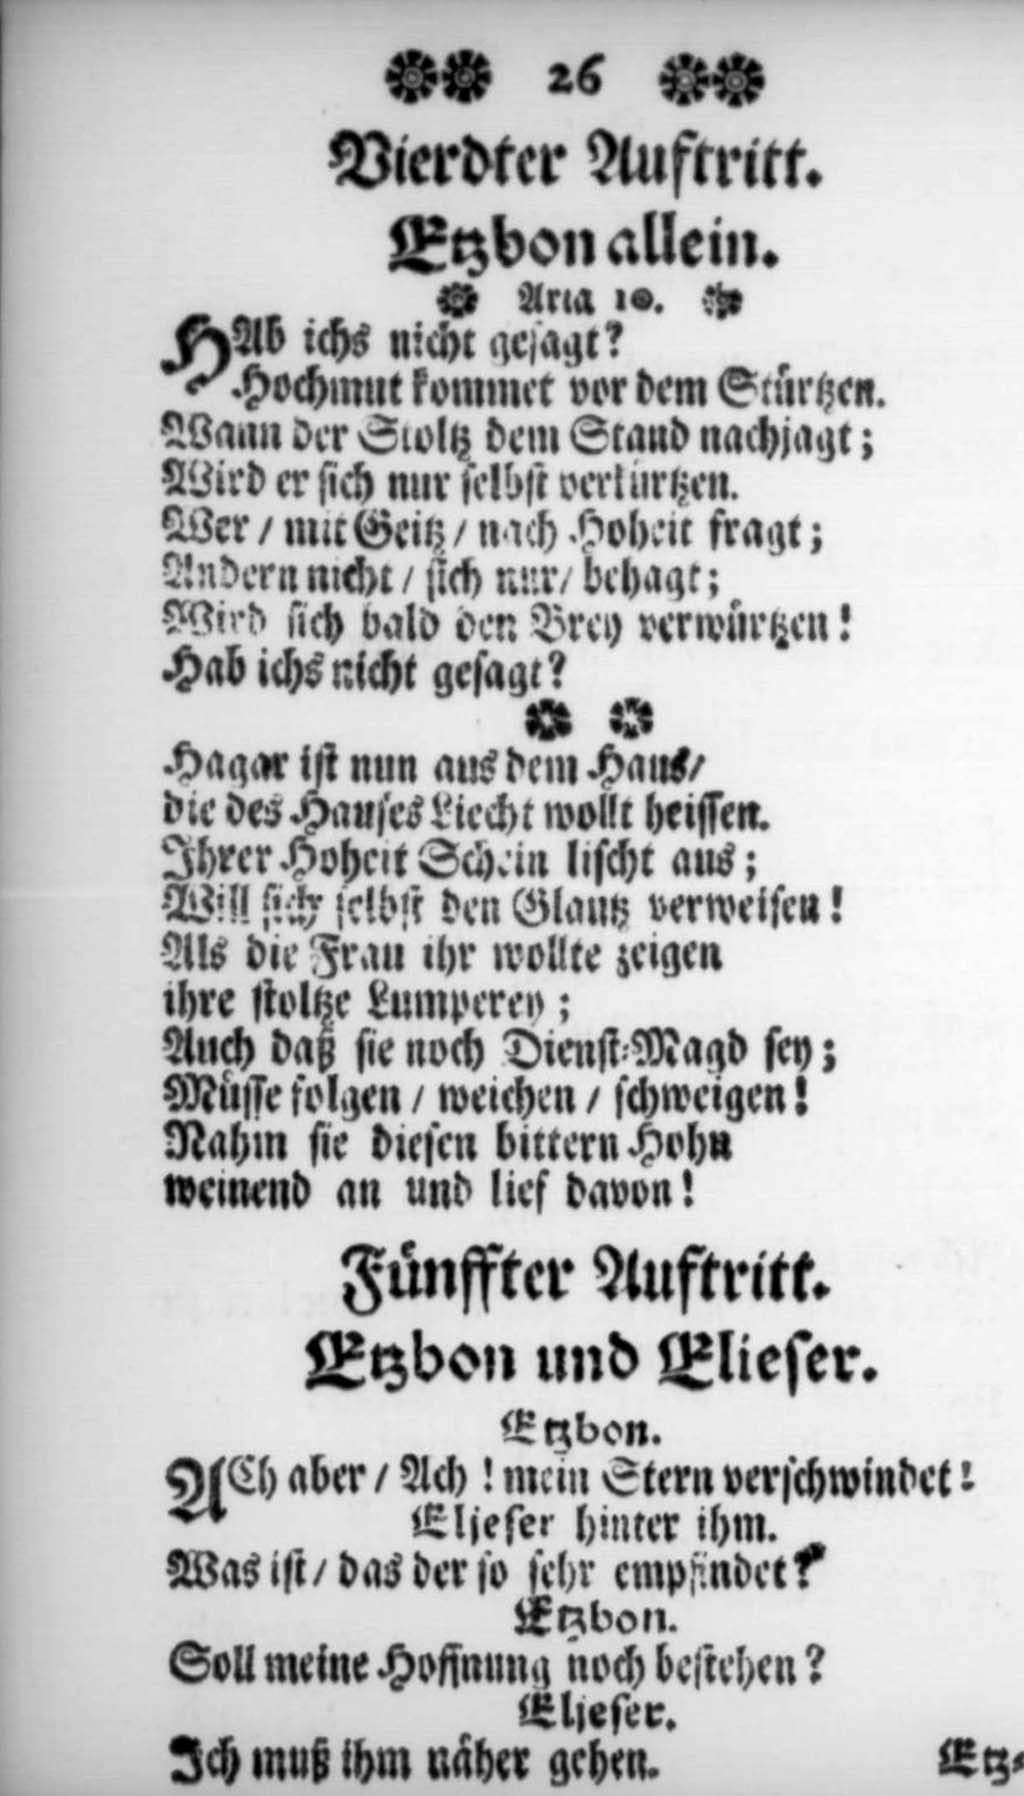 26
Vierdter Auftritt.
Etzbon allein.
Aria 10.
HAb ichs nicht gesagt?
Hochmut kommet vor dem Stürtzen.
Wann der Stoltz dem Stand nachjagt;
Wird er sich nur selbst verkürtzen.
Wer / mit Geitz / nach Hoheit fragt;
Andern nicht / sich nur / behagt;
Wird sich bald den Brey verwürtzen!
Hab ichs nicht gesagt?
Hagar ist nun aus dem Haus/
die des Hauses Liecht wollt heissen.
Ihrer Hoheit Schein lischt aus;
Will sich selbst den Glantz verweisen!
Als die Frau ihr wollte zeigen
ihre stoltze Lumperey;
Auch daß sie noch Dienst-Magd sey;
Müsse folgen / weichen / schweigen!
Nahm sie diesen bittern Hohn
weinend an und lief davon!
Fünffter Auftritt.
Etzbon und Elieser.
Etzbon.
ACh aber / Ach! mein Stern verschwindet!
Eljeser hinter ihm.
Was ist / das der so sehr empfindet?
Etzbon.
Soll meine Hoffnung noch bestehen?
Eljeser.
Ich muß ihm näher gehen.
Etz-